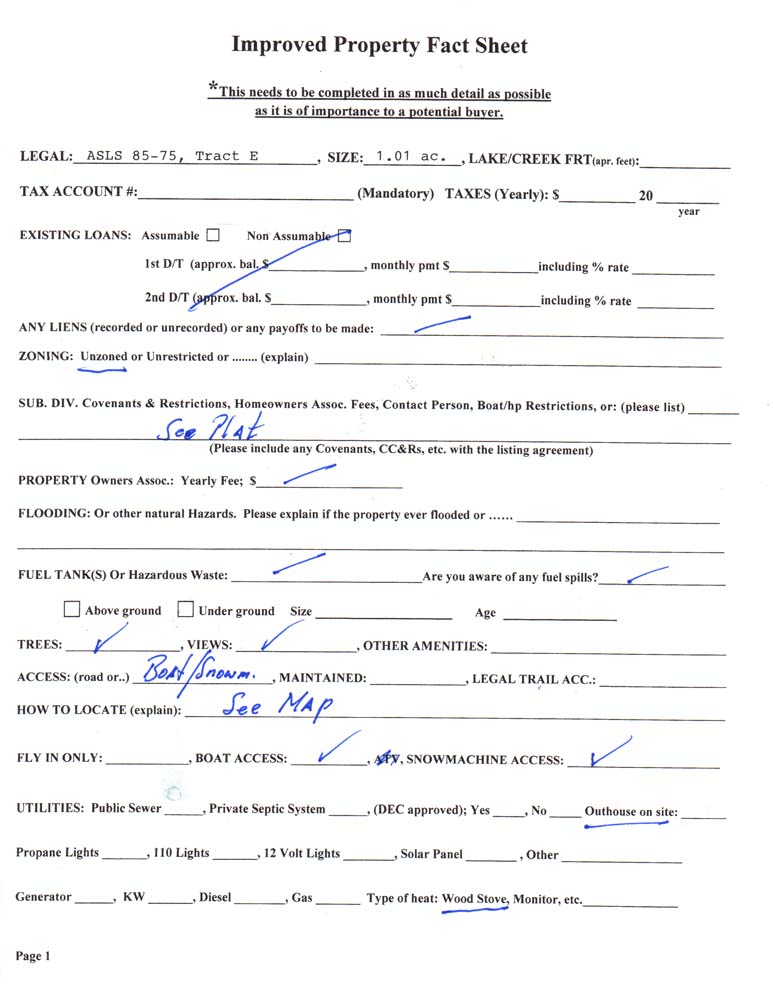 Improved Property Fact Sheet
*This needs to be completed in as much detail as possible
as it is of importance to a potential buyer.
LEGAL: ASLS 85-75, Tract E, SIZE: 1.01 ac., LAKE/CREEK FRT(apr. feet):
TAX ACCOUNT #: (Mandatory) TAXES (Yearly): $ 20
year
EXISTING LOANS: Assumable ☐ Non Assumable ☐
1st D/T (approx. bal. $, monthly pmt $ including % rate
2nd D/T (approx. bal. $, monthly pmt $ including % rate
ANY LIENS (recorded or unrecorded) or any payoffs to be made:
ZONING: Unzoned or Unrestricted or ........ (explain)
SUB. DIV. Covenants & Restrictions, Homeowners Assoc. Fees, Contact Person, Boat/hp Restrictions, or: (please list)
See Plat
(Please include any Covenants, CC&Rs, etc. with the listing agreement)
PROPERTY Owners Assoc.: Yearly Fee; $
FLOODING: Or other natural Hazards. Please explain if the property ever flooded or ......
FUEL TANK(S) Or Hazardous Waste: Are you aware of any fuel spills? 
☐ Above ground ☐ Under ground Size Age
TREES: ✓, VIEWS: ✓, OTHER AMENITIES:
ACCESS: (road or..) Boat/Snowm., MAINTAINED: , LEGAL TRAIL ACC.:
HOW TO LOCATE (explain): See MAP
FLY IN ONLY: , BOAT ACCESS: ✓, ATV, SNOWMACHINE ACCESS: ✓
UTILITIES: Public Sewer , Private Septic System , (DEC approved); Yes , No Outhouse on site:
Propane Lights , 110 Lights , 12 Volt Lights , Solar Panel , Other
Generator , KW , Diesel , Gas Type of heat: Wood Stove, Monitor, etc.
Page 1